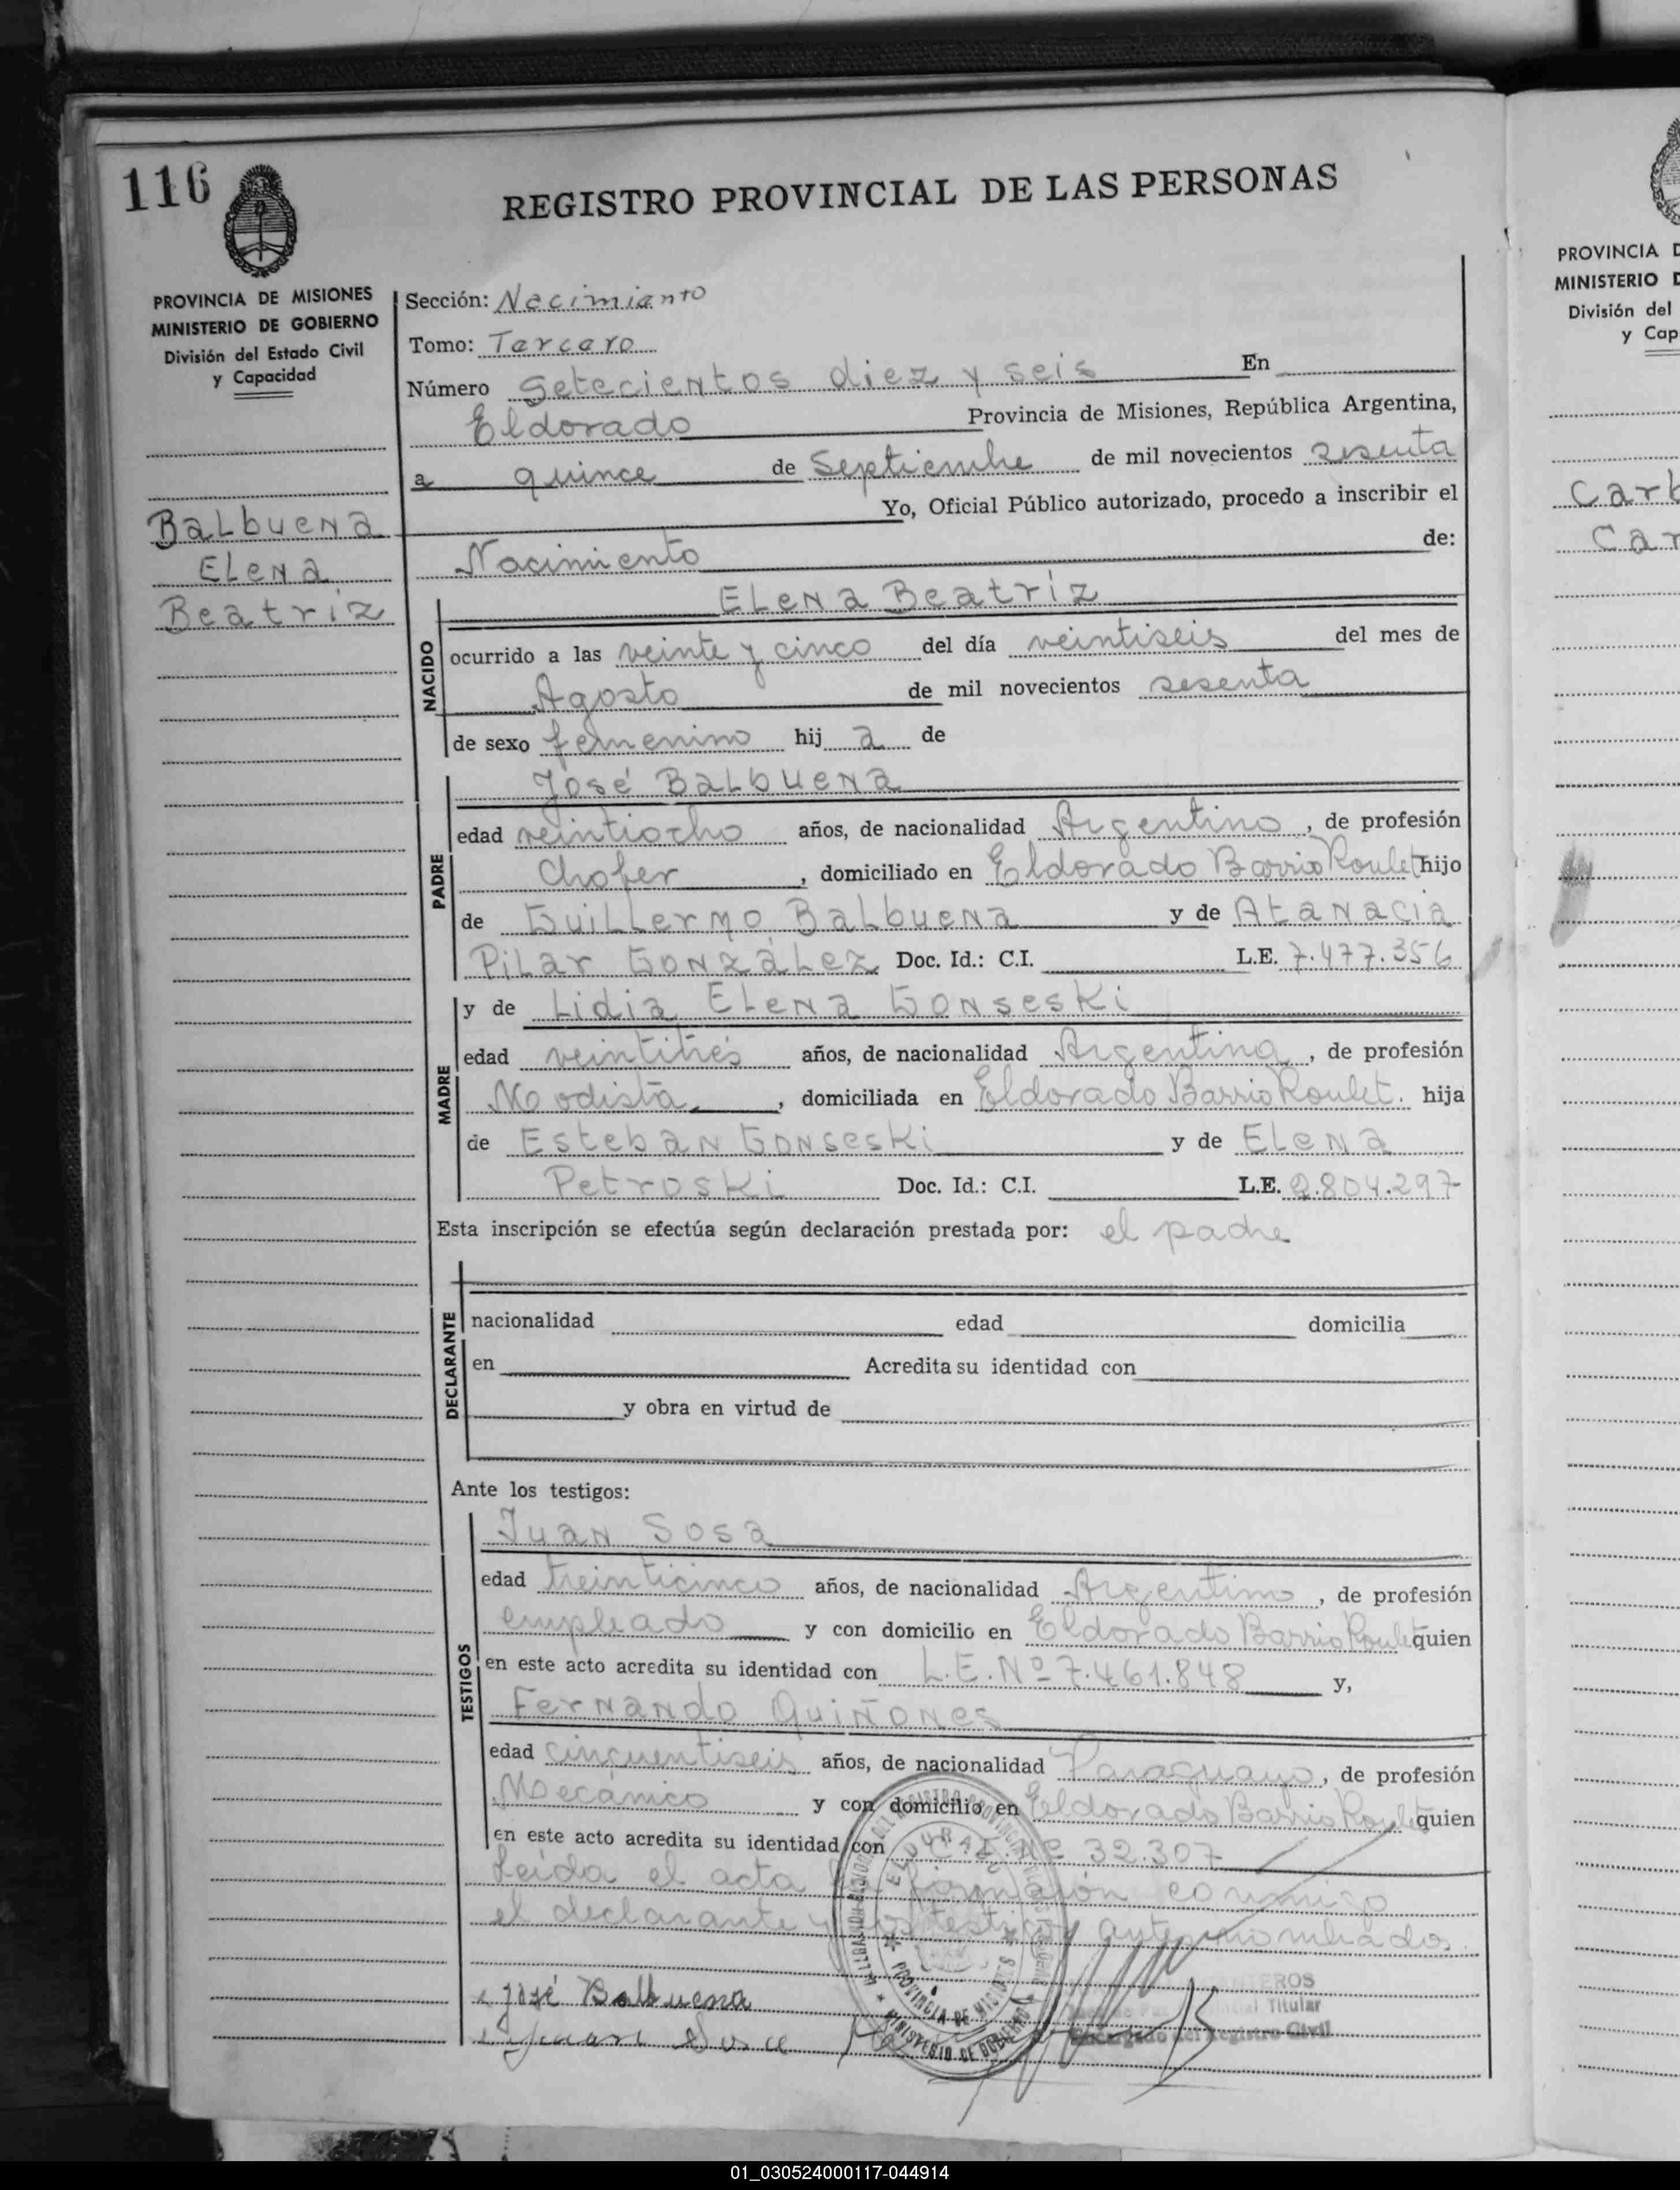 116
REGISTRO PROVINCIAL DE LAS PERSONAS
PROVINCIA DE MISIONES
MINISTERIO DE GOBIERNO
División del Estado Civil
y Capacidad
Balbuena
Elena
Beatríz
Sección: Necimianto
Tomo: Tercero
Número Setecientos diez y seis En
Eldorado Provincia de Misiones, República Argentina,
a quince de Septiembre de mil novecientos sesenta
Yo, Oficial Público autorizado, procedo a inscribir el
Nacimiento de:
NACIDO
Elena Beatríz
ocurrido a las veinte y cinco del día veintiseis del mes de
Agosto de mil novecientos sesenta
de sexo femenino hij a de
PADRE
José Balbuena
edad veintiocho años, de nacionalidad Argentino, de profesión
Chofer, domiciliado en Eldorado Barrio Roulet hijo
de Guillermo Balbuena y de Atanacia
Pilar González Doc. Id.: C.I. L.E. 7.477.356
MADRE
y de Lidia Elena Gonseski
edad veintitrés años, de nacionalidad Argentina, de profesión
Modista, domiciliada en Eldorado Barrio Roulet. hija
de Esteban Gonseski y de Elena
Petroski Doc. Id.: C.I. L.E. 2.804.297
Esta inscripción se efectúa según declaración prestada por: el padre
DECLARANTE
nacionalidad edad domicilia
en Acredita su identidad con
y obra en virtud de
Ante los testigos:
TESTIGOS
Juan Sosa
edad treinticinco años, de nacionalidad Argentino, de profesión
empleado y con domicilio en Eldorado Barrio Roulet quien
en este acto acredita su identidad con L.E. Nº 7.461.848 y,
Fernando Quiñones
edad cincuentiseis años, de nacionalidad Paraguayo, de profesión
Mecánico y con domicilio en Eldorado Barrio Roulet quien
en este acto acredita su identidad con Nº 32.307
Leída el acta la firman conmigo
el declarante y los testigos antes nombrados.
José Balbuena
Juan Sosa
PROVINCIA DE MISIONES
MINISTERIO DE GOBIERNO
Titular
Encargado del Registro Civil
PROVINCIA D
MINISTERIO D
División del
y Cap
Carb
Car
01_030524000117-044914